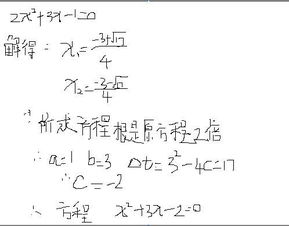 2x²+3x-1=0
解得：x₁=(-3+√17)/4
x₂=(-3-√17)/4
∵所求方程根是原方程2倍
∴a=1 b=3 Δt=3²-4c=17
∴C=-2
∴方程 x²+3x-2=0